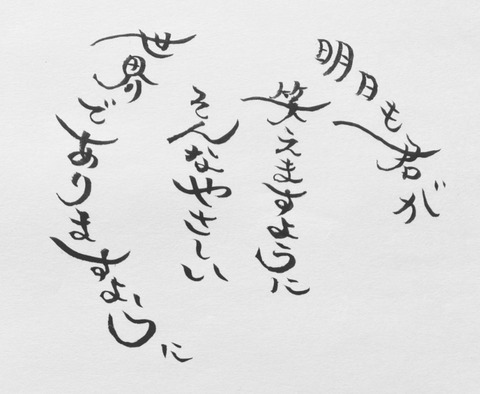 明日も君が
笑えますように
そんなやさしい
世界でありますように